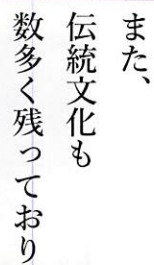 また、
伝統文化も
数多く残っており